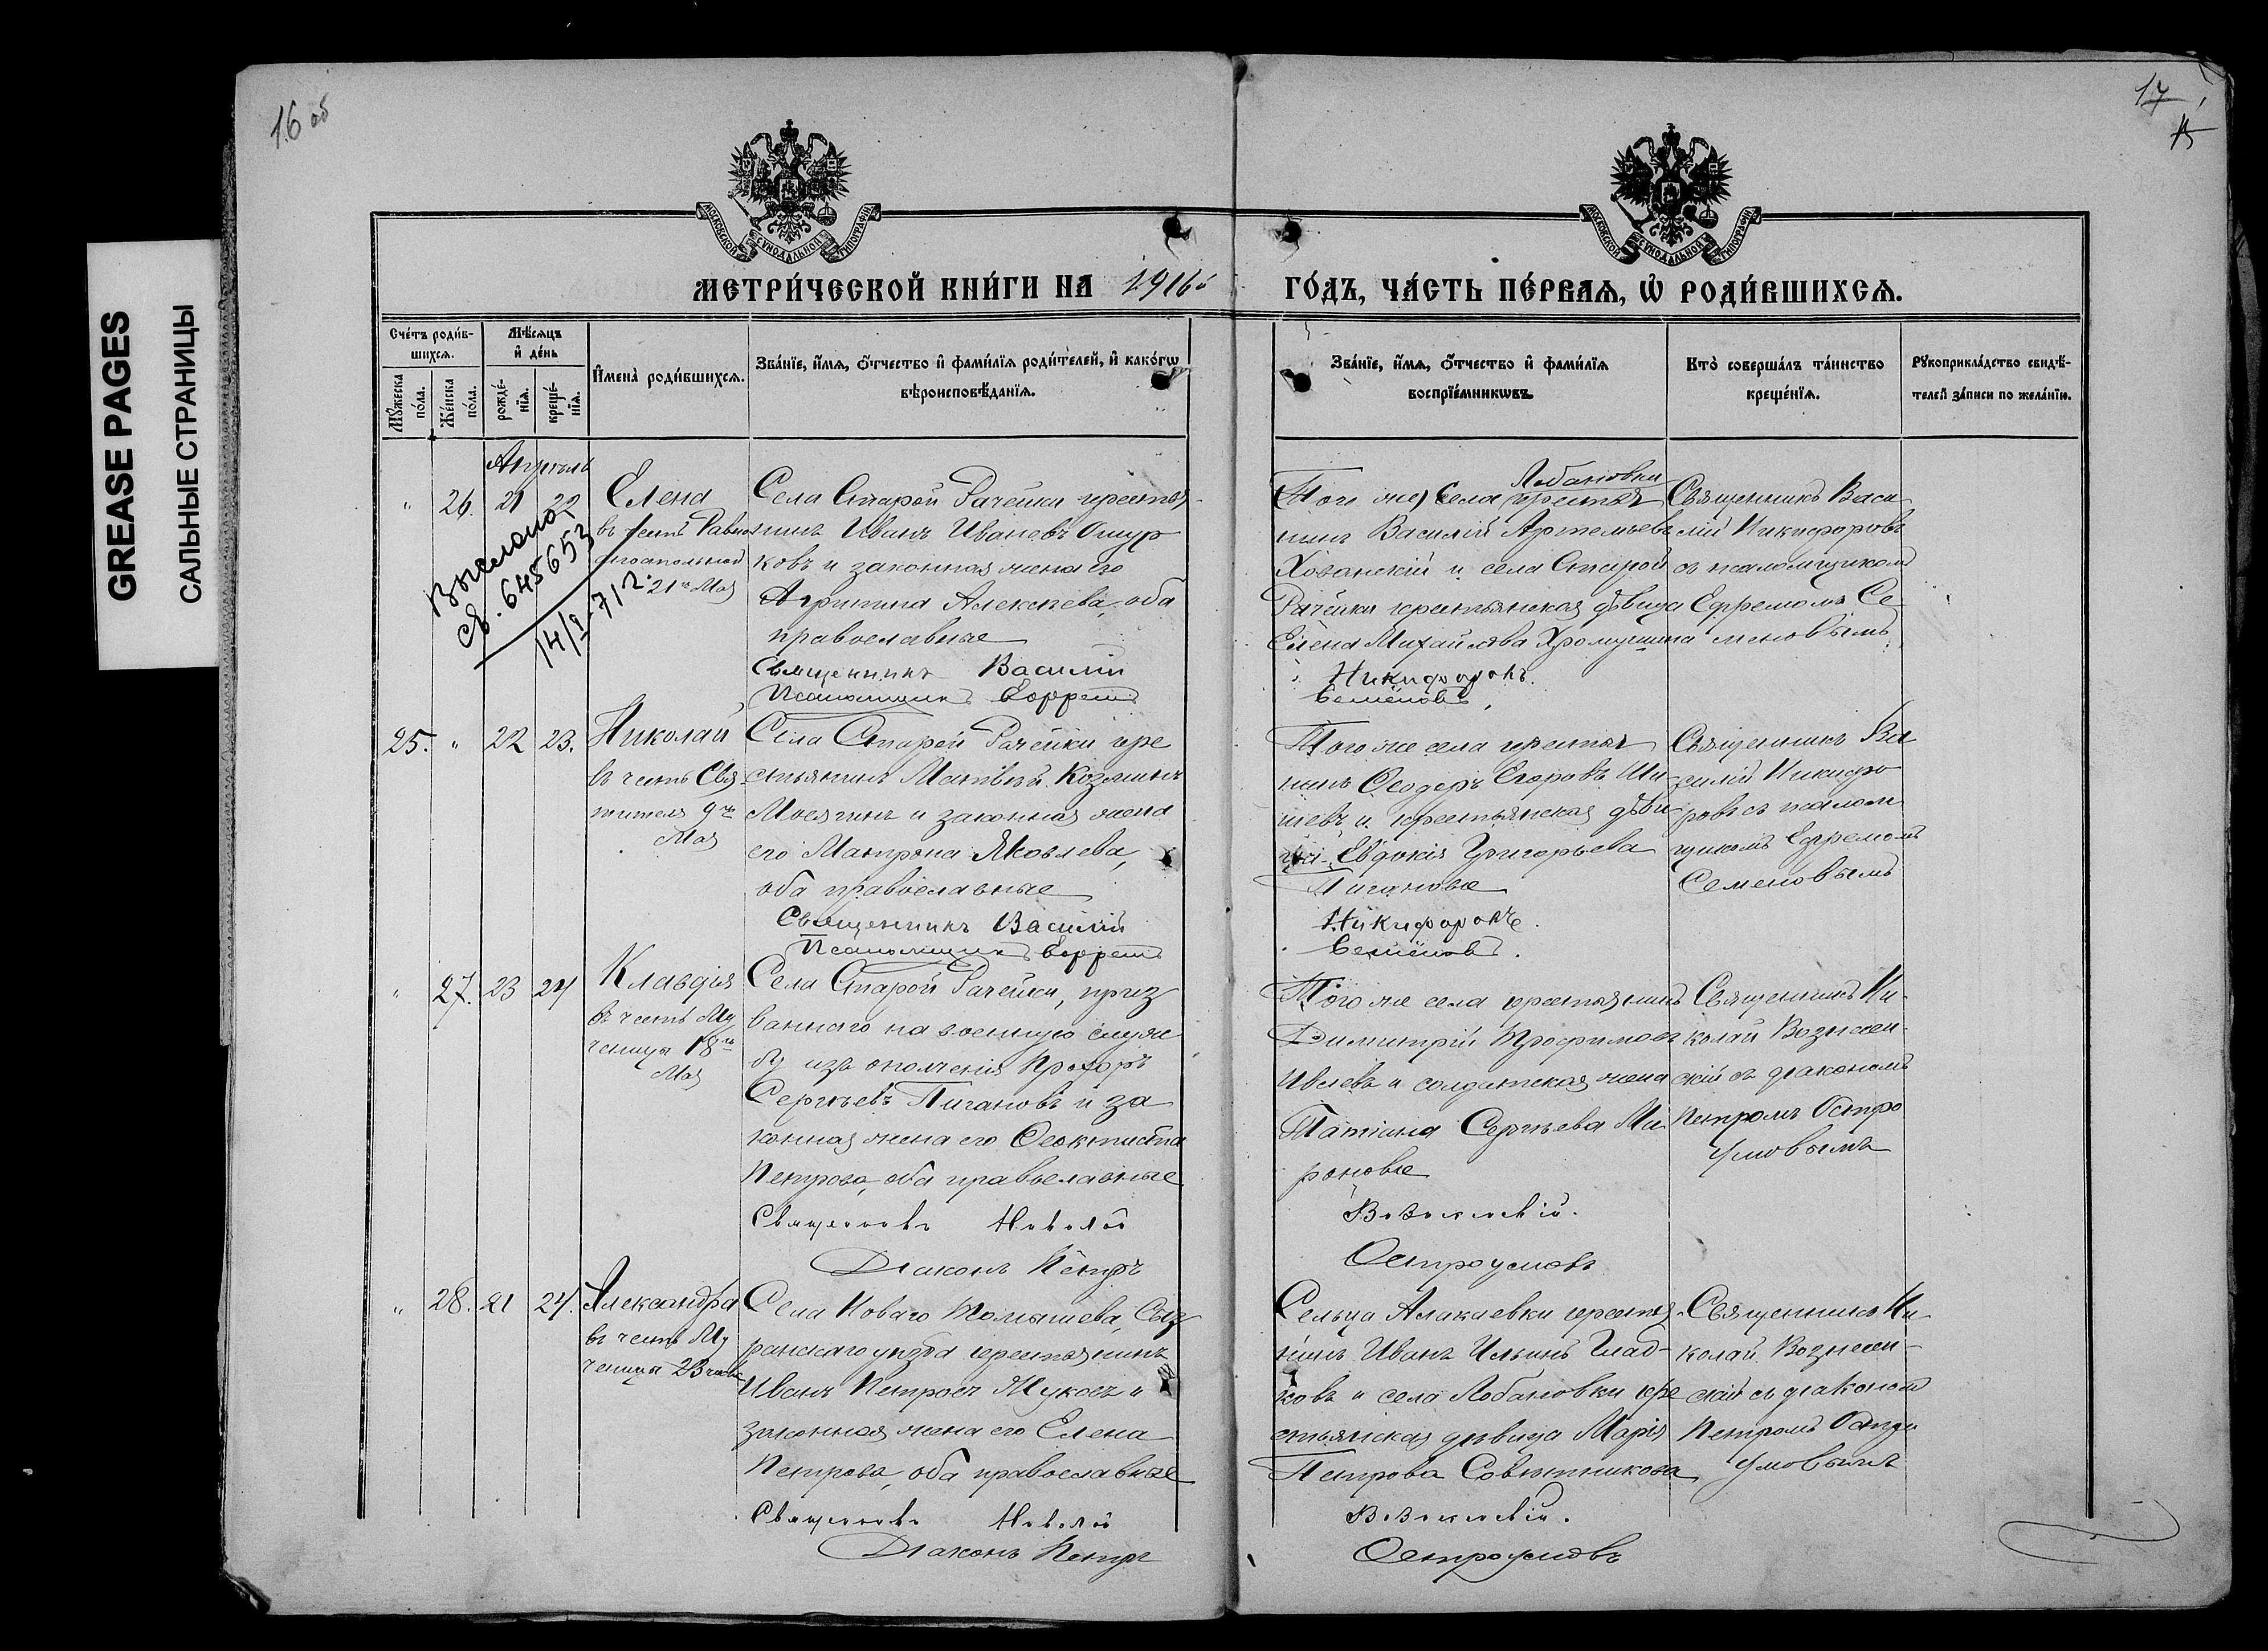 GREASE PAGES
САЛЬНЫЕ СТРАНИЦЫ
16 об
17
МОСКОВСКОЙ СѴНОДАЛЬНОЙ ТИПОГРАФІИ
МОСКОВСКОЙ СѴНОДАЛЬНОЙ ТИПОГРАФІИ
МЕТРИ́ЧЕСКОЙ КНИ́ГИ НА 1916й ГО́ДЪ, ЧА́СТЬ ПЕ́РВАЯ, Ѡ РОДИ́ВШИХСЯ.
Сче́тъ роди́в-
шихся.
Мѣ́сяцъ
и҆ де́нь
Мꙋ́жеска
по́ла.
Же́нска
по́ла.
рожде́-
нїя.
креще́-
нїя.
И҆мена̀ роди́вшихся.
Зва́нїе, и҆́мя, ѻ҆́тчество и҆ фами́лїя роди́телей, и҆ како́гѡ
вѣроисповѣ́данїя.
Зва́нїе, и҆́мя, ѻ҆́тчество и҆ фами́лїя
воспрїе́мникѡвъ.
Кто̀ соверша́лъ та́инство
креще́нїя.
Рꙋкоприкла́дство свидѣ́-
телей за́писи по жела́нїю.
Апрѣль
" 26. 21 22
Елена
въ честь Равно
апостольной
21го Мая
Выслано
св. 645653
14/I-71г.
Села Старой Рачейки крестья-
нинъ Иванъ Ивановъ Ошур
ковъ и законная жена его
Агриппина Алексѣева, оба
православные
Священникъ Василій
Псаломщикъ Ефремъ
Того же) Села Лобановки крестья
нинъ Василій Артемьевъ
Хованскій и села Старой
Рачейки крестьянская дѣвица
Елена Михайлова Хромушина
Никифоровъ.
Семёновъ.
Священникъ Васи
лій Никифоровъ
съ псаломщикомъ
Ефремомъ Се
меновымъ
25. " 22 23.
Николай
въ честь Свя
тителя 9го
Мая
Села Старой Рачейки кре
стьянинъ Матвѣй Козминъ
Моегинъ и законная жена
его Матрона Яковлева,
оба православные
Священникъ Василій
Псаломщикъ Ефремъ
Того же села крестья
нинъ Ѳеодоръ Егоровъ Ши-
шевъ и крестьянская дѣви
ца Евдокія Григорьева
Пиганова
Никифоровъ.
Семёновъ.
Священникъ Ва
силій Никифо
ровъ съ псалом
щикомъ Ефремомъ
Семеновымъ
" 27. 23 24
Клавдія
въ честь Му
ченицы 18го
Мая
Села Старой Рачейки, приз
ваннаго на военную служ
бу изъ ополченія Прохоръ
Сергѣевъ Пигановъ и за
конная жена его Ѳеоктиста
Петрова, оба православные
Священникъ Николай
Діаконъ Петръ
Того же села крестьянинъ
Димитрій Трофимовъ
Ивлевъ и солдатская жена
Татіана Сергѣева Ми
ронова
Вознесенскій.
Остроумовъ
Священникъ Ни-
колай Вознесен-
скій съ діакономъ
Петромъ Остро
умовымъ
" 28. 21 24.
Александра
въ честь Му
ченицы 23 апр
Села Новаго Томышева, Сыз
ранскаго уѣзда крестьянинъ
Иванъ Петровъ Жуковъ и
законная жена его Елена
Петрова, оба православные
Священникъ Николай
Діаконъ Петръ
Сельца Алакаевки крестья
нинъ Иванъ Ильинъ Глад-
ковъ и села Лобановки кре
стьянская дѣвица Марія
Петрова Совѣтникова
Вознесенскій.
Остроумовъ
Священникъ Ни-
колай Вознесен-
скій съ діакономъ
Петромъ Остро
умовымъ